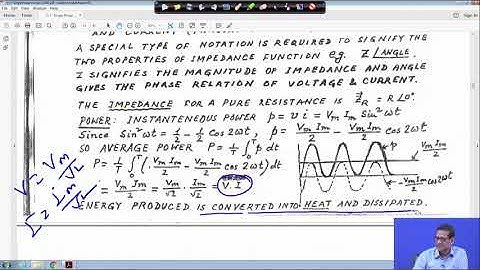 AND CURRENT
A SPECIAL TYPE OF NOTATION IS REQUIRED TO SIGNIFY THE
TWO PROPERTIES OF IMPEDANCE FUNCTION eg. Z∠ANGLE.
Z SIGNIFIES THE MAGNITUDE OF IMPEDANCE AND ANGLE
GIVES THE PHASE RELATION OF VOLTAGE & CURRENT.
THE IMPEDANCE FOR A PURE RESISTANCE IS Z̄R = R∠0°.
POWER: INSTANTENEOUS POWER p = v i = Vm Im Sin²ωt
Since Sin²ωt = 1/2 - 1/2 Cos 2ωt, p = Vm Im/2 - Vm Im/2 Cos 2ωt
SO AVERAGE POWER P = 1/T ∫₀ᵀ p dt
P = 1/T ∫₀ᵀ (Vm Im/2 - Vm Im/2 Cos 2ωt) dt
= Vm Im/2 = Vm/√2 · Im/√2 = V. I
p
Vm Im/2
-Vm Im/2 Cos 2ωt
V = Vm/√2
I = im/√2
ENERGY PRODUCED IS CONVERTED INTO HEAT AND DISSIPATED.